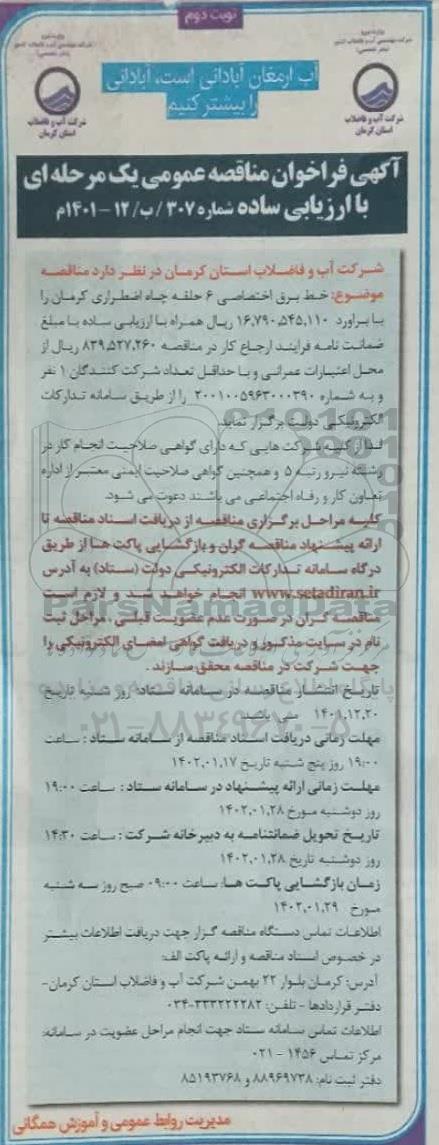 نوبت دوم
وزارت نیرو
شرکت مهندسی آب و فاضلاب کشور
(مادر تخصصی)
شرکت آب و فاضلاب
استان کرمان
آب ارمغان آبادانی است، آبادانی
را بیشتر کنیم
وزارت نیرو
شرکت مهندسی آب و فاضلاب کشور
(مادر تخصصی)
شرکت آب و فاضلاب
استان کرمان
آگهی فراخوان مناقصه عمومی یک مرحله ای
با ارزیابی ساده شماره ۳۰۷/ب/۱۲-۱۴۰۱م
شرکت آب و فاضلاب استان کرمان در نظر دارد مناقصه
موضوع: خط برق اختصاصی ۶ حلقه چاه اضطراری کرمان را
با برآورد ۱۶,۷۹۰,۵۴۵,۱۱۰ ریال همراه با ارزیابی ساده با مبلغ
ضمانت نامه فرایند ارجاع کار در مناقصه ۸۳۹,۵۲۷,۲۶۰ ریال از
محل اعتبارات عمرانی و با حداقل تعداد شرکت کنندگان ۱ نفر
و به شماره ۲۰۰۱۰۰۵۹۶۳۰۰۰۳۹۰ را از طریق سامانه تدارکات
الکترونیکی دولت برگزار نماید.
لذا از کلیه شرکت هایی که دارای گواهی صلاحیت انجام کار در
رشته نیرو رتبه ۵ و همچنین گواهی صلاحیت ایمنی معتبر از اداره
تعاون کار و رفاه اجتماعی می باشند دعوت می شود.
کلیه مراحل برگزاری مناقصه از دریافت اسناد مناقصه تا
ارائه پیشنهاد مناقصه گران و بازگشایی پاکت ها از طریق
درگاه سامانه تدارکات الکترونیکی دولت (ستاد) به آدرس
www.setadiran.ir انجام خواهد شد و لازم است
مناقصه گران در صورت عدم عضویت قبلی، مراحل ثبت
نام در سایت مذکور و دریافت گواهی امضای الکترونیکی را
جهت شرکت در مناقصه محقق سازند.
تاریخ انتشار مناقصه در سامانه ستاد: روز شنبه تاریخ
۱۴۰۱,۱۲,۲۰ می باشد.
مهلت زمانی دریافت اسناد مناقصه از سامانه ستاد: ساعت
۱۹:۰۰ روز پنج شنبه تاریخ ۱۴۰۲,۰۱,۱۷
مهلت زمانی ارائه پیشنهاد در سامانه ستاد: ساعت ۱۹:۰۰
روز دوشنبه مورخ ۱۴۰۲,۰۱,۲۸
تاریخ تحویل ضمانتنامه به دبیرخانه شرکت: ساعت ۱۴:۳۰
روز دوشنبه تاریخ ۱۴۰۲,۰۱,۲۸
زمان بازگشایی پاکت ها: ساعت ۰۹:۰۰ صبح روز سه شنبه
مورخ ۱۴۰۲,۰۱,۲۹
اطلاعات تماس دستگاه مناقصه گزار جهت دریافت اطلاعات بیشتر
در خصوص اسناد مناقصه و ارائه پاکت الف:
آدرس: کرمان بلوار ۲۲ بهمن شرکت آب و فاضلاب استان کرمان-
دفتر قراردادها - تلفن: ۳۳۳۲۲۲۲۸۲-۰۳۴
اطلاعات تماس سامانه ستاد جهت انجام مراحل عضویت در سامانه:
مرکز تماس ۱۴۵۶ - ۰۲۱
دفتر ثبت نام: ۸۸۹۶۹۷۳۸ و ۸۵۱۹۳۷۶۸
مدیریت روابط عمومی و آموزش همگانی
ParsNamadData
۰۲۱-۸۸۳۴۹۶۷۰-۵